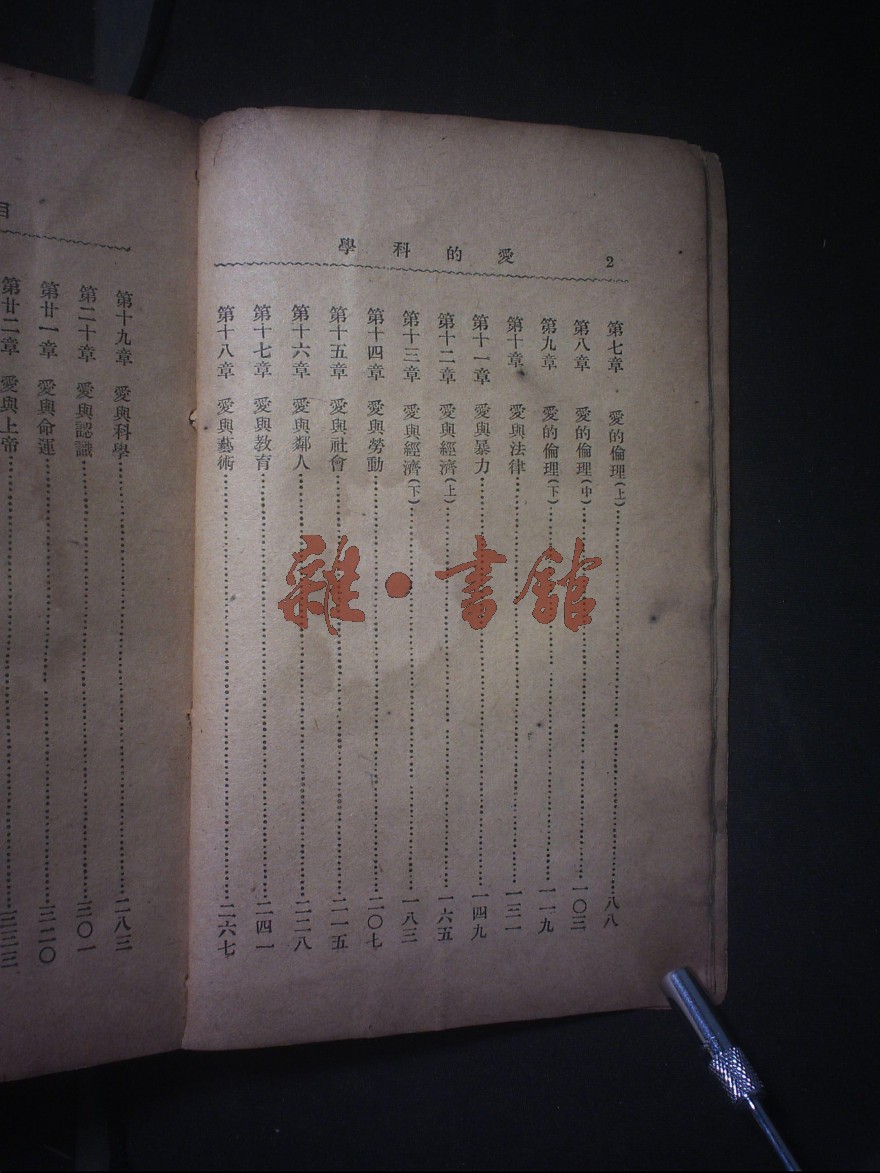 2
愛的科學
第七章 愛的倫理(上)……八八
第八章 愛的倫理(中)……一〇三
第九章 愛的倫理(下)……一一九
第十章 愛與法律……一三二
第十一章 愛與暴力……一四九
第十二章 愛與經濟(上)……一六五
第十三章 愛與經濟(下)……一八三
第十四章 愛與勞動……二〇七
第十五章 愛與社會……二一五
第十六章 愛與鄰人……二二八
第十七章 愛與教育……二四一
第十八章 愛與藝術……二六七
目
第十九章 愛與科學……二八三
第二十章 愛與認識……三〇一
第廿一章 愛與命運……三二〇
第廿二章 愛與上帝……三三三
雜·書館